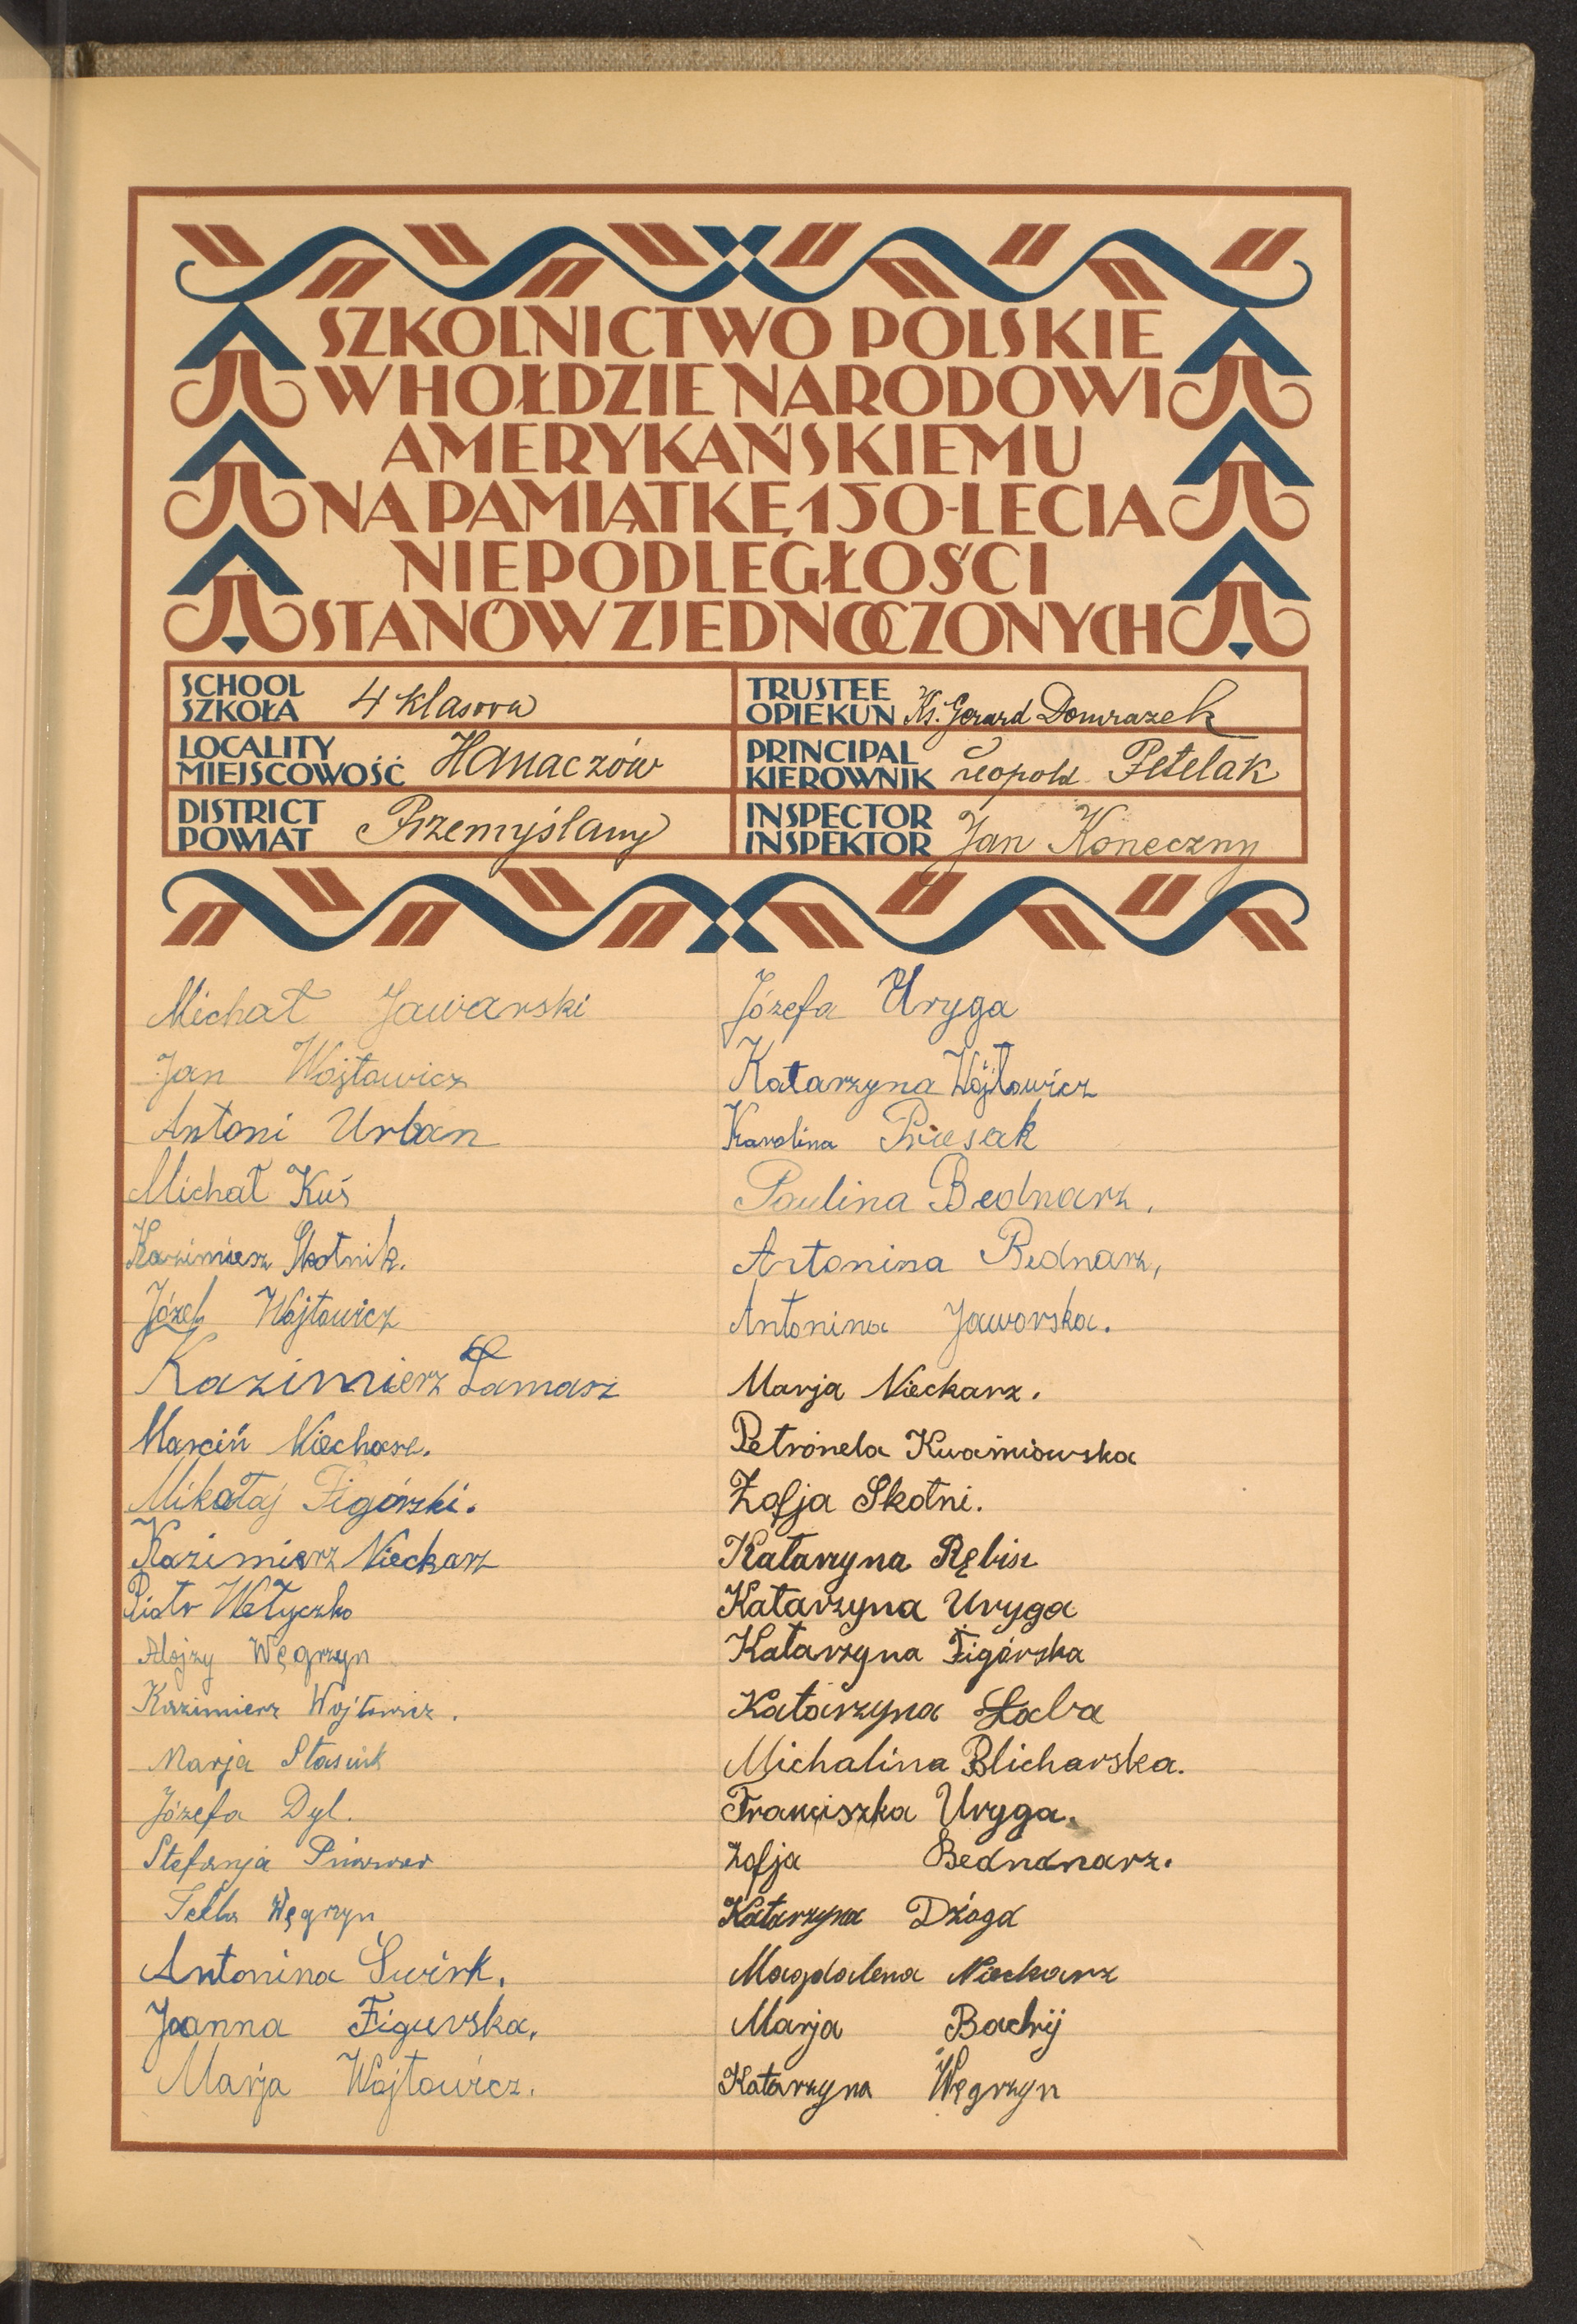 SZKOLNICTWO POLSKIE
W HOŁDZIE NARODOWI
AMERYKAŃSKIEMU
NA PAMIĄTKĘ 150-LECIA
NIEPODLEGŁOŚCI
STANÓW ZJEDNOCZONYCH
SCHOOL
SZKOŁA
4 klasowa
TRUSTEE
OPIEKUN
Ks. Gerard Domrazek
LOCALITY
MIEJSCOWOŚĆ
Hanaczów
PRINCIPAL
KIEROWNIK
Leopold Petelak
DISTRICT
POWIAT
Przemyślany
INSPECTOR
INSPEKTOR
Jan Koneczny
Michał Jawarski
Jan Wojtowicz
Antoni Urban
Michał Kuś
Kazimierz Skotnik.
Józef Wojtowicz
Kazimierz Łamasz
Marciń
Mikołaj Figórski.
Kazimierz Nieckarz
Piotr Wełyczko
Alojzy Węgrzyn
Kazimierz Wojtowicz.
Marja Stasiuk
Józefa Dyl.
Stefanja
Tekla Węgrzyn
Antonina Świrk.
Joanna Figurska.
Marja Wojtowicz.
Józefa Uryga
Katarzyna Wójtowicz
Karolina
Paulina Bednarz.
Antonina Bednarz,
Antonina Jaworska.
Marja Nieckarz.
Petronela Kwaśniowska
Zofja Skotni.
Katarzyna Rębisz
Katarzyna Uryga
Katarzyna Figórska
Katarzyna Łaba
Michalina Blicharska.
Franciszka Uryga.
Zofja Bedndnarz.
Katarzyna Dżoga
Magdalena Nieckarz
Marja Bachrij
Katarzyna Węgrzyn